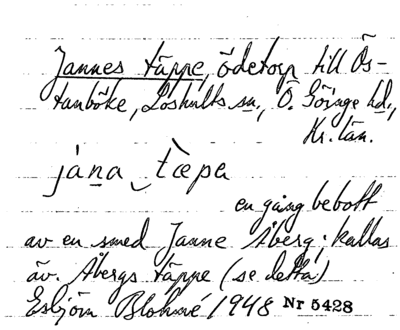 Jannes täppe, ödetorp till Ös-
tanböke, Loshults sn., Ö. Göinge hd.,
Kr. län.
jàna tæpa
en gång bebott
av en smed Janne Åberg; kallas
äv. Åbergs täppe (se detta)
Esbjörn Blohmé 1948 Nr 5428